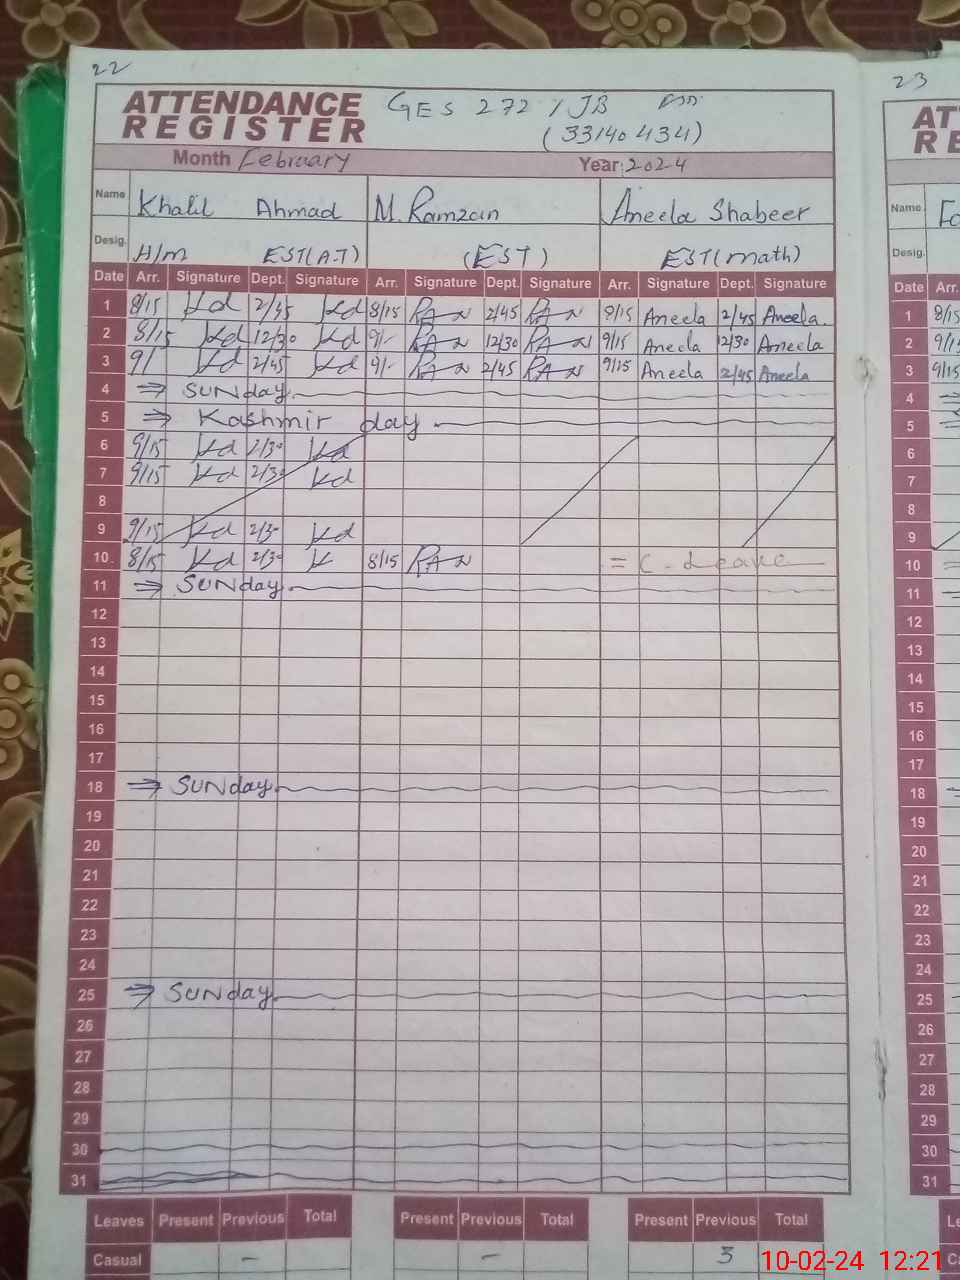 22
ATTENDANCE REGISTER GES 272 / JB
(33140434)
Month February Year: 2024
Name Khalil Ahmad M. Ramzan Aneela Shabeer
Desig. H/m EST(A.T) (EST) EST(math)
Date Arr. Signature Dept. Signature Arr. Signature Dept. Signature Arr. Signature Dept. Signature
1 8/15 Kd 2/45 Kd 8/15 RAn 2/45 RAn 8/15 Aneela 2/45 Aneela.
2 8/15 Kd 12/30 Kd 9/- RAn 12/30 RAn 9/15 Aneela 12/30 Aneela
3 9/ Kd 2/45 Kd 9/- RAn 2/45 RAn 9/15 Aneela 2/45 Aneela
4 ⇒ SUNday
5 ⇒ Kashmir day
6 9/15 Kd 2/30 Kd
7 9/15 Kd 2/30 Kd
8
9 9/15 Kd 2/30 Kd
10 8/15 Kd 2/30 K 8/15 RAn = C. Leave
11 ⇒ SUNday
12
13
14
15
16
17
18 ⇒ SUNday
19
20
21
22
23
24
25 ⇒ SUNday
26
27
28
29
30
31
Leaves Present Previous Total Present Previous Total Present Previous Total
Casual - - 3
23
AT
RE
Name
Desig.
Date Arr.
1 8/15
2 9/15
3 9/15
4
5
6
7
8
9
10 =
11
12
13
14
15
16
17
18
19
20
21
22
23
24
25
26
27
28
29
30
31
Le
10-02-24 12:21